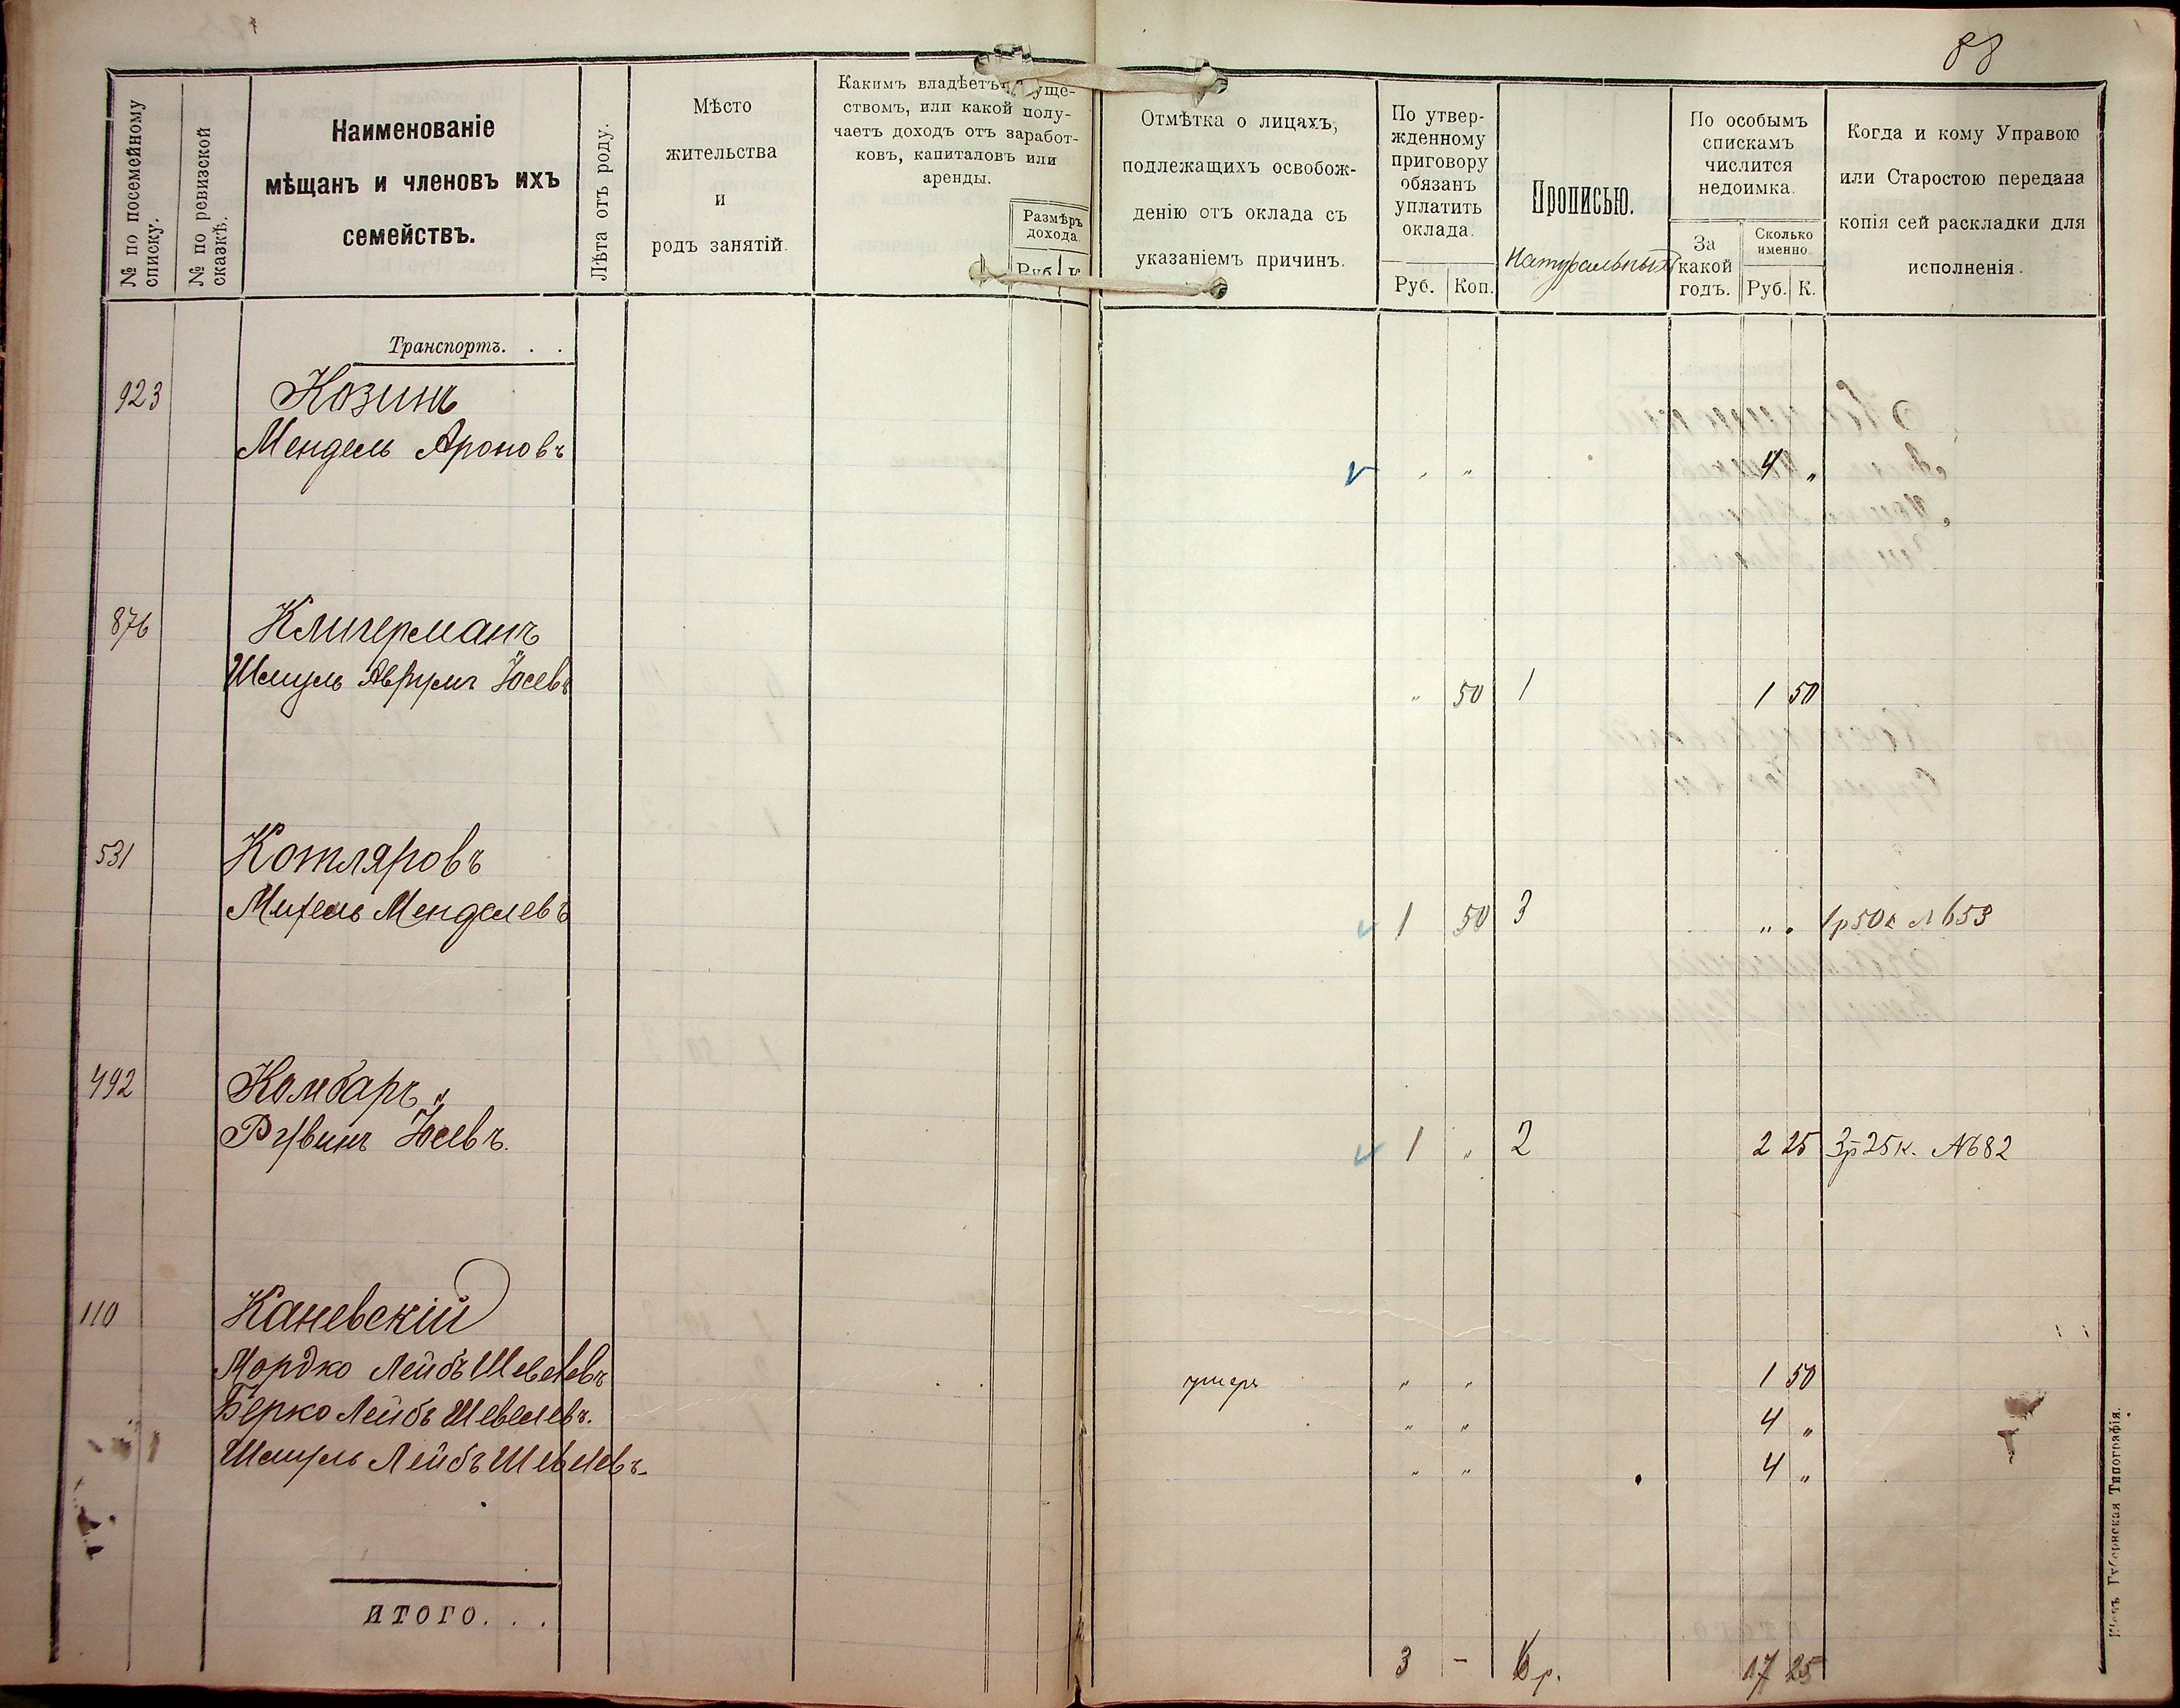 88
№ по посемейному списку.
№ по ревизской сказкѣ.
Наименованіе
мѣщанъ и членовъ ихъ
семействъ.
Лѣта отъ роду.
Мѣсто
жительства
и
родъ занятій.
Какимъ владѣетъ уще-
ствомъ, или какой полу-
чаетъ доходъ отъ заработ-
ковъ, капиталовъ или
аренды.
Размѣръ
дохода.
Руб. К
Отмѣтка о лицахъ,
подлежащихъ освобож-
денію отъ оклада съ
указаніемъ причинъ.
По утвер-
жденному
приговору
обязанъ
уплатить
оклада.
Руб. Коп.
Прописью.
Натуральный
По особымъ
спискамъ
числится
недоимка.
За
какой
годъ.
Сколько
именно.
Руб. К.
Когда и кому Управою
или Старостою передана
копія сей раскладки для
исполненія.
Транспортъ. . .
923 Козинъ
Мендель Ароновъ " " 4 "
876 Клигерманъ
Шмуль Аврумъ Іосевъ " 50 1 1 50
531 Котляровъ
Михель Менделевъ 1 50 3 " " 1р50к №653
492 Комбаръ
Рувинъ Іосевъ. 1 " 2 2 25 3р25к. №682
110 Каневскій
Мордко Лейбъ Шевелевъ умеръ " " 1 50
Берко Лейбъ Шевелевъ. " " 4 "
Шмуль Лейбъ Шевелевъ. " " 4 "
ИТОГО. . .
3 - 6р. 17 25
Кіевъ. Губернская Типографія.